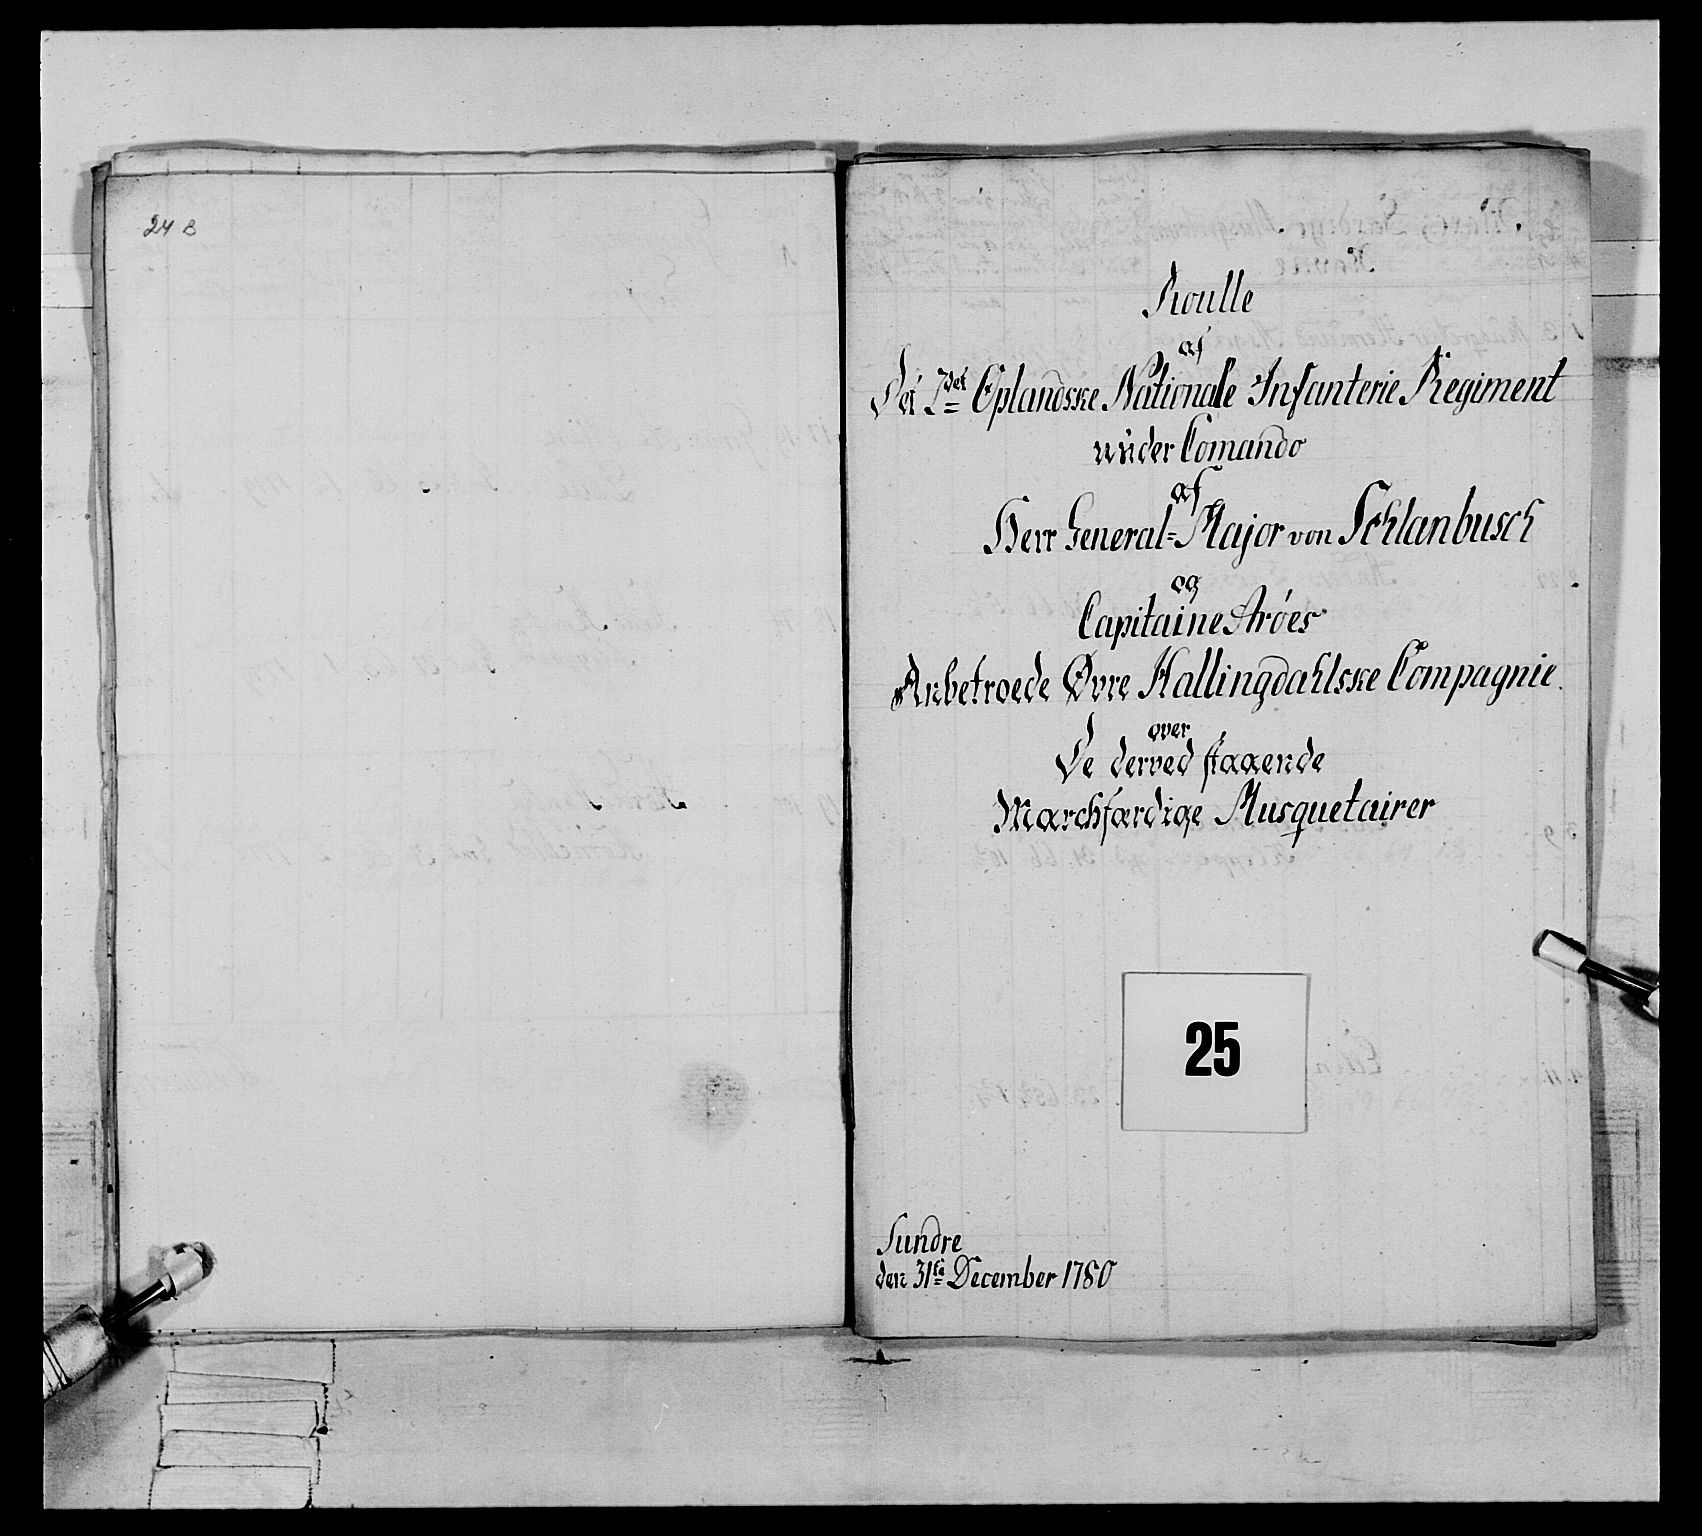 24 B
Roulle
af
Det 2det Oplandske Nationale Infanterie Regiment
under Comando
af
Herr General=Major von Schlanbusch
og
Capitaine Aróes
Anbetroede Øvre Hallingdahlske Compagnie.
over
De derved staaende
Marchfærdige Musquetairer
25
Sundre
den 31te December 1780